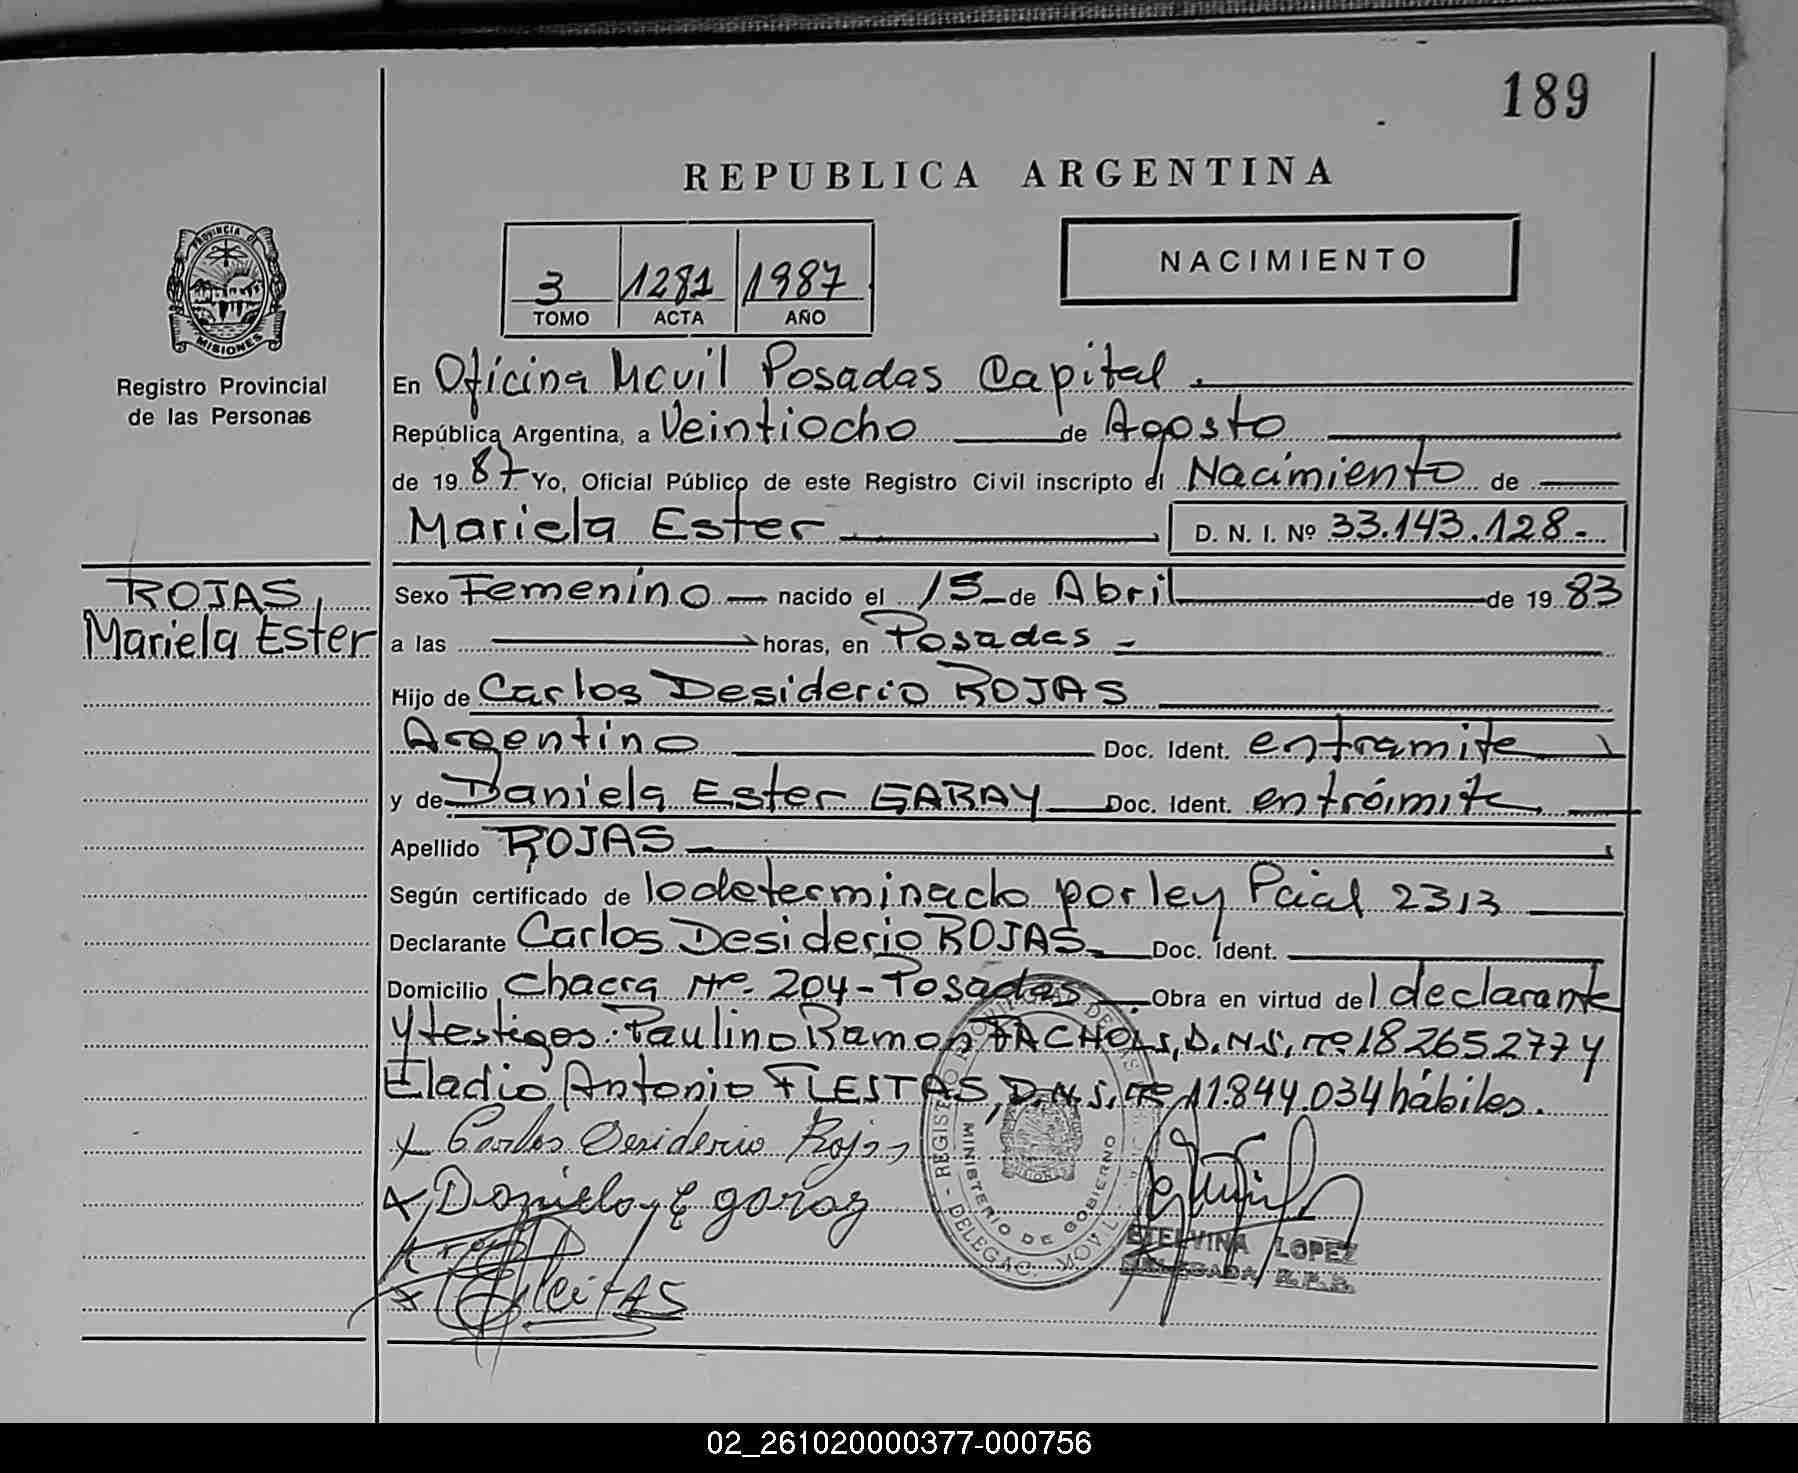 189
REPUBLICA ARGENTINA
PROVINCIA DE
MISIONES
Registro Provincial
de las Personas
3 1281 1987
TOMO ACTA AÑO
NACIMIENTO
En Oficina Movil Posadas Capital.
República Argentina, a Veintiocho de Agosto
de 1987 Yo, Oficial Público de este Registro Civil inscripto el Nacimiento de
Mariela Ester D. N. I. Nº 33.143.128.-
ROJAS,
Mariela Ester
Sexo Femenino nacido el 15 de Abril de 1983
a las horas, en Posadas -
Hijo de Carlos Desiderio ROJAS
Argentino Doc. Ident. entramite
y de Daniela Ester GARAY Doc. Ident. entrámite
Apellido ROJAS
Según certificado de lo determinado por ley Pcial 2313
Declarante Carlos Desiderio ROJAS Doc. Ident.
Domicilio Chacra Nº 204 - Posadas Obra en virtud del declarante
y testigos: Paulino Ramon D.N.I. nº 18265277 y
Eladio Antonio FLEITAS, D.N.I. nº 11.844.034 hábiles.
x Carlos Desiderio Rojas
x Daniela E garay
x FleitAS
REGISTRO DE LAS
MINISTERIO DE GOBIERNO
DELEGAC. MOVIL
ETELVINA LOPEZ
DELEGADA R.P.P.
02_261020000377-000756